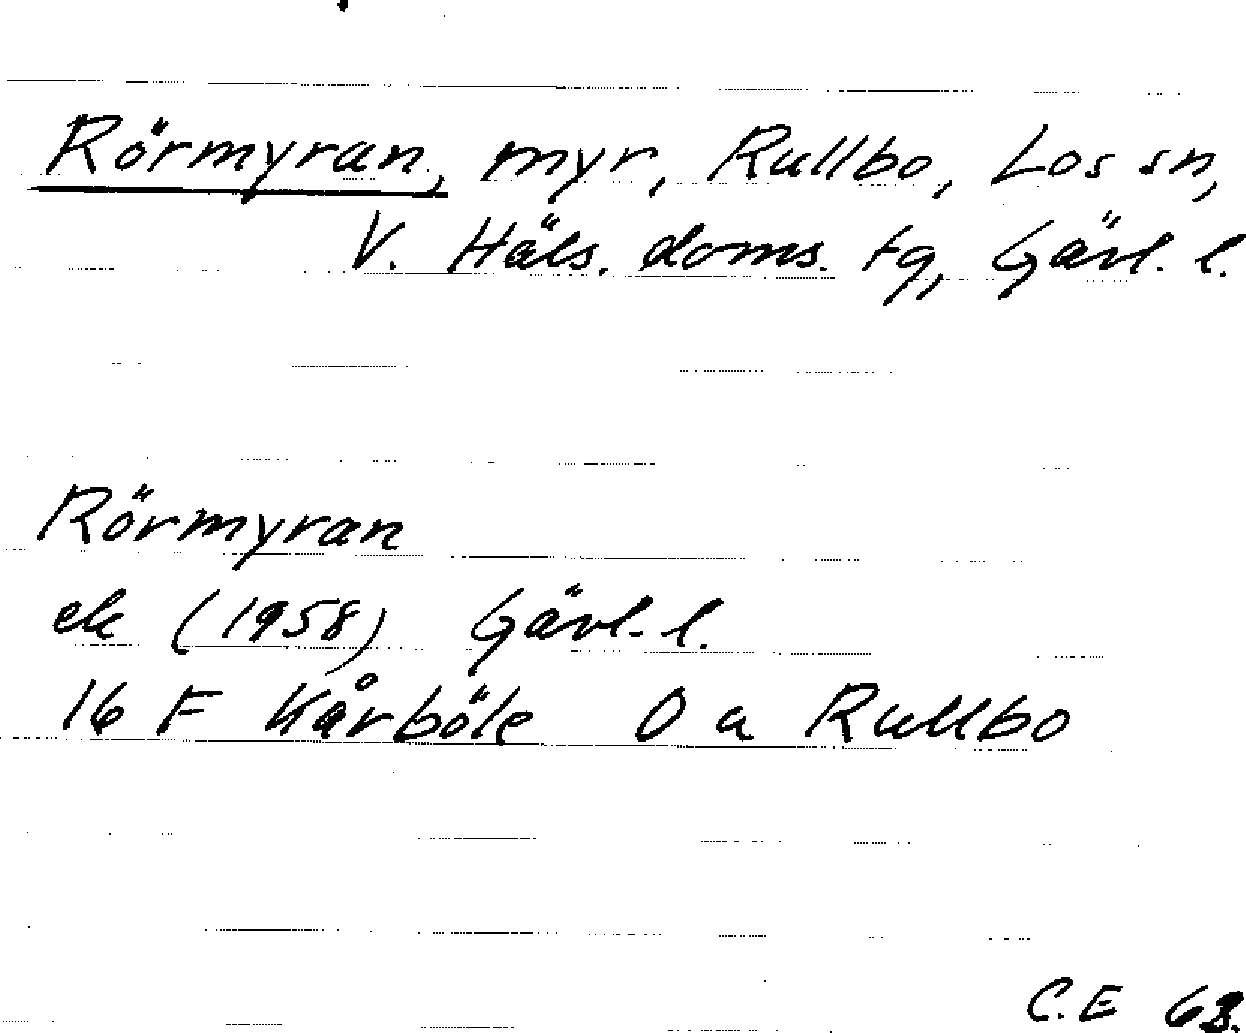 Rörmyran, myr, Rullbo, Los sn,
V. Häls. doms. tg, Gävl. l.
Rörmyran
ek (1958) Gävl. l.
16 F Kårböle O a Rullbo
C.E